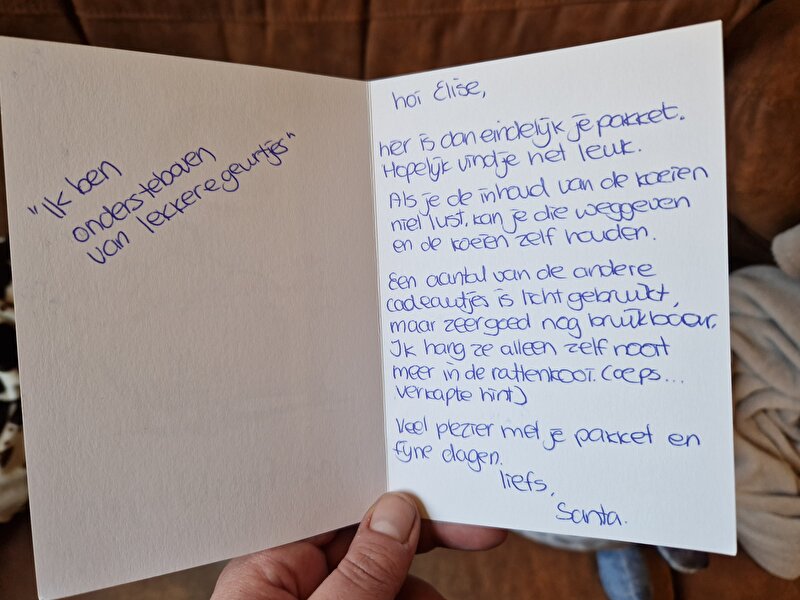 "Ik ben
ondersteboven
van lekkere geurtjes"
hoi Elise,
hier is dan eindelijk je pakket.
Hopelijk vind je het leuk.
Als je de inhoud van de koeien
niet lust, kan je die weggeven
en de koeien zelf houden.
Een aantal van de andere
cadeautjes is licht gebruikt,
maar zeer goed nog bruikbaar.
Ik hang ze alleen zelf nooit
meer in de rattenkooi. (oeps...
verkapte hint)
Veel plezier met je pakket en
fijne dagen.
liefs,
Santa.